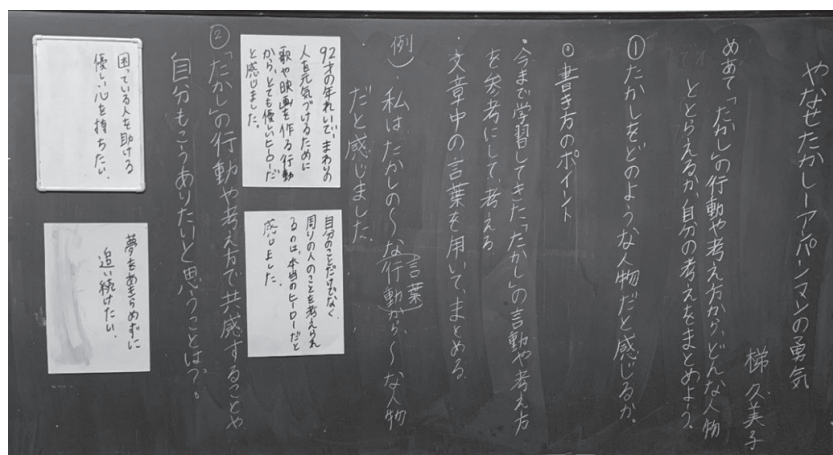 やなせたかしーアンパンマンの勇気
梯 久美子
めあて「たかし」の行動や考え方から、どんな人物
ととらえるか、自分の考えをまとめよう。
① たかしをどのような人物だと感じるか。
◎書き方のポイント
・今まで学習してきた「たかし」の言動や考え方
を参考にして、考える
・文章中の言葉を用いて、まとめる
例)・私はたかしの〜な行動から、〜な人物
言葉
だと感じました。
92才の年れいで、まわりの
人を元気づけるために
歌や映画を作る行動
から、とても優しいヒーローだ
と感じました。
自分のことだけでなく、
周りの人のことを考えられ
るのは、本当のヒーローだと
感じました。
②「たかし」の行動や考え方で共感することや
自分もこうありたいと思うことは?。
困っている人を助ける
優しい心を持ちたい。
夢をあきらめずに
追い続けたい。